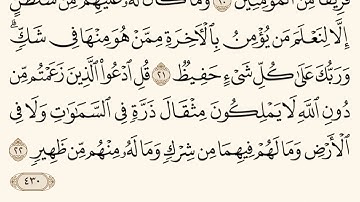 فَرِيقًا مِّنَ ٱلْمُؤْمِنِينَ ٢٠ وَمَا كَانَ لَهُۥ عَلَيْهِم مِّن سُلْطَٰنٍ
إِلَّا لِنَعْلَمَ مَن يُؤْمِنُ بِٱلْـَٔاخِرَةِ مِمَّنْ هُوَ مِنْهَا فِى شَكٍّۗ
وَرَبُّكَ عَلَىٰ كُلِّ شَىْءٍ حَفِيظٌ ٢١ قُلِ ٱدْعُوا۟ ٱلَّذِينَ زَعَمْتُم مِّن
دُونِ ٱللَّهِ لَا يَمْلِكُونَ مِثْقَالَ ذَرَّةٍ فِى ٱلسَّمَٰوَٰتِ وَلَا فِى
ٱلْأَرْضِ وَمَا لَهُمْ فِيهِمَا مِن شِرْكٍ وَمَا لَهُۥ مِنْهُم مِّن ظَهِيرٍ ٢٢
٤٣٠